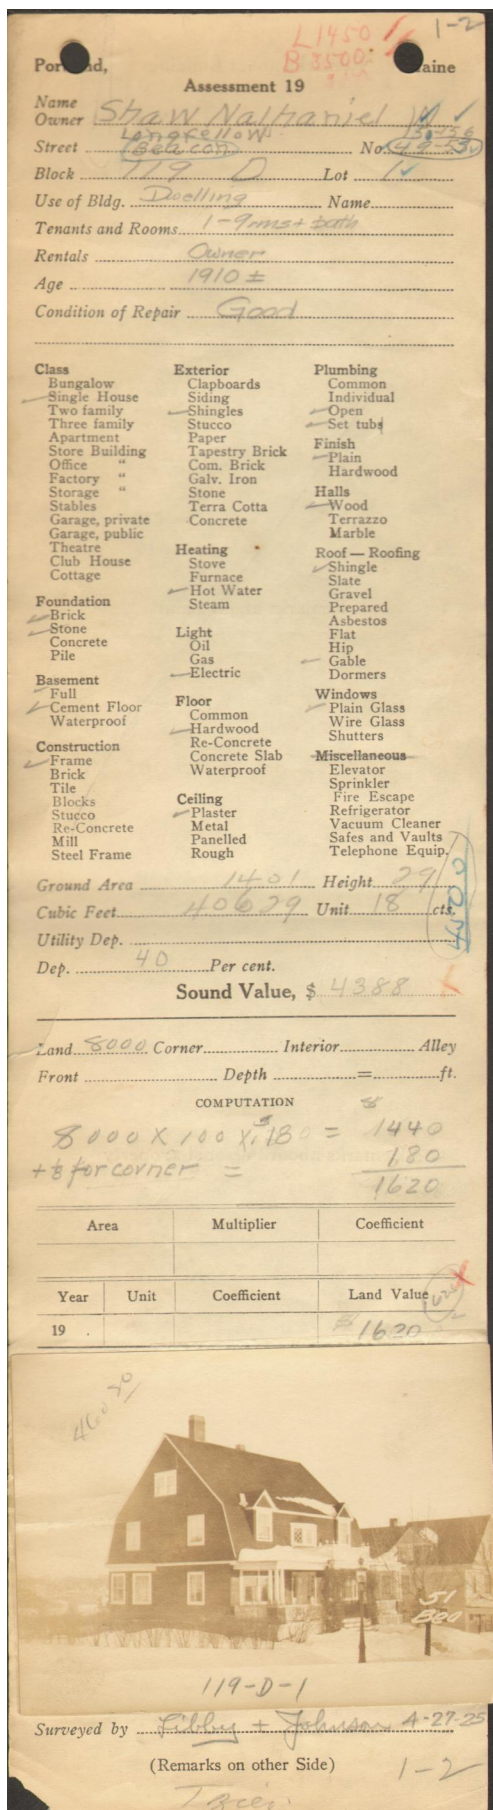 L 1450 1-2
B 3500
Portland, Maine
Assessment 19
Name
Owner Shaw Nathaniel
Longfellow 150-156
Street Beacon No. 49-53
Block 119 D Lot 1
Use of Bldg. Dwelling Name
Tenants and Rooms 1-9 rms + bath
Rentals Owner
Age 1910 ±
Condition of Repair Good
Class
Bungalow
Single House
Two family
Three family
Apartment
Store Building
Office "
Factory "
Storage "
Stables
Garage, private
Garage, public
Theatre
Club House
Cottage
Foundation
Brick
Stone
Concrete
Pile
Basement
Full
Cement Floor
Waterproof
Construction
Frame
Brick
Tile
Blocks
Stucco
Re-Concrete
Mill
Steel Frame
Exterior
Clapboards
Siding
Shingles
Stucco
Paper
Tapestry Brick
Com. Brick
Galv. Iron
Stone
Terra Cotta
Concrete
Heating
Stove
Furnace
Hot Water
Steam
Light
Oil
Gas
Electric
Floor
Common
Hardwood
Re-Concrete
Concrete Slab
Waterproof
Ceiling
Plaster
Metal
Panelled
Rough
Plumbing
Common
Individual
Open
Set tubs
Finish
Plain
Hardwood
Halls
Wood
Terrazzo
Marble
Roof — Roofing
Shingle
Slate
Gravel
Prepared
Asbestos
Flat
Hip
Gable
Dormers
Windows
Plain Glass
Wire Glass
Shutters
Miscellaneous
Elevator
Sprinkler
Fire Escape
Refrigerator
Vacuum Cleaner
Safes and Vaults
Telephone Equip.
Ground Area 1401 Height 29
Cubic Feet 40629 Unit 18 cts.
Utility Dep.
Dep. 40 Per cent.
Sound Value, $ 4388
Land 8000 Corner Interior Alley
Front Depth = ft.
COMPUTATION
8000 X 100 X .180 = 1440
+ 1/8 for corner = 180
1620
Area Multiplier Coefficient
Year Unit Coefficient Land Value
19 . 1620
51
Bea
119-D-1
Surveyed by Libby + Johnson 4-27-25
(Remarks on other Side) 1-2